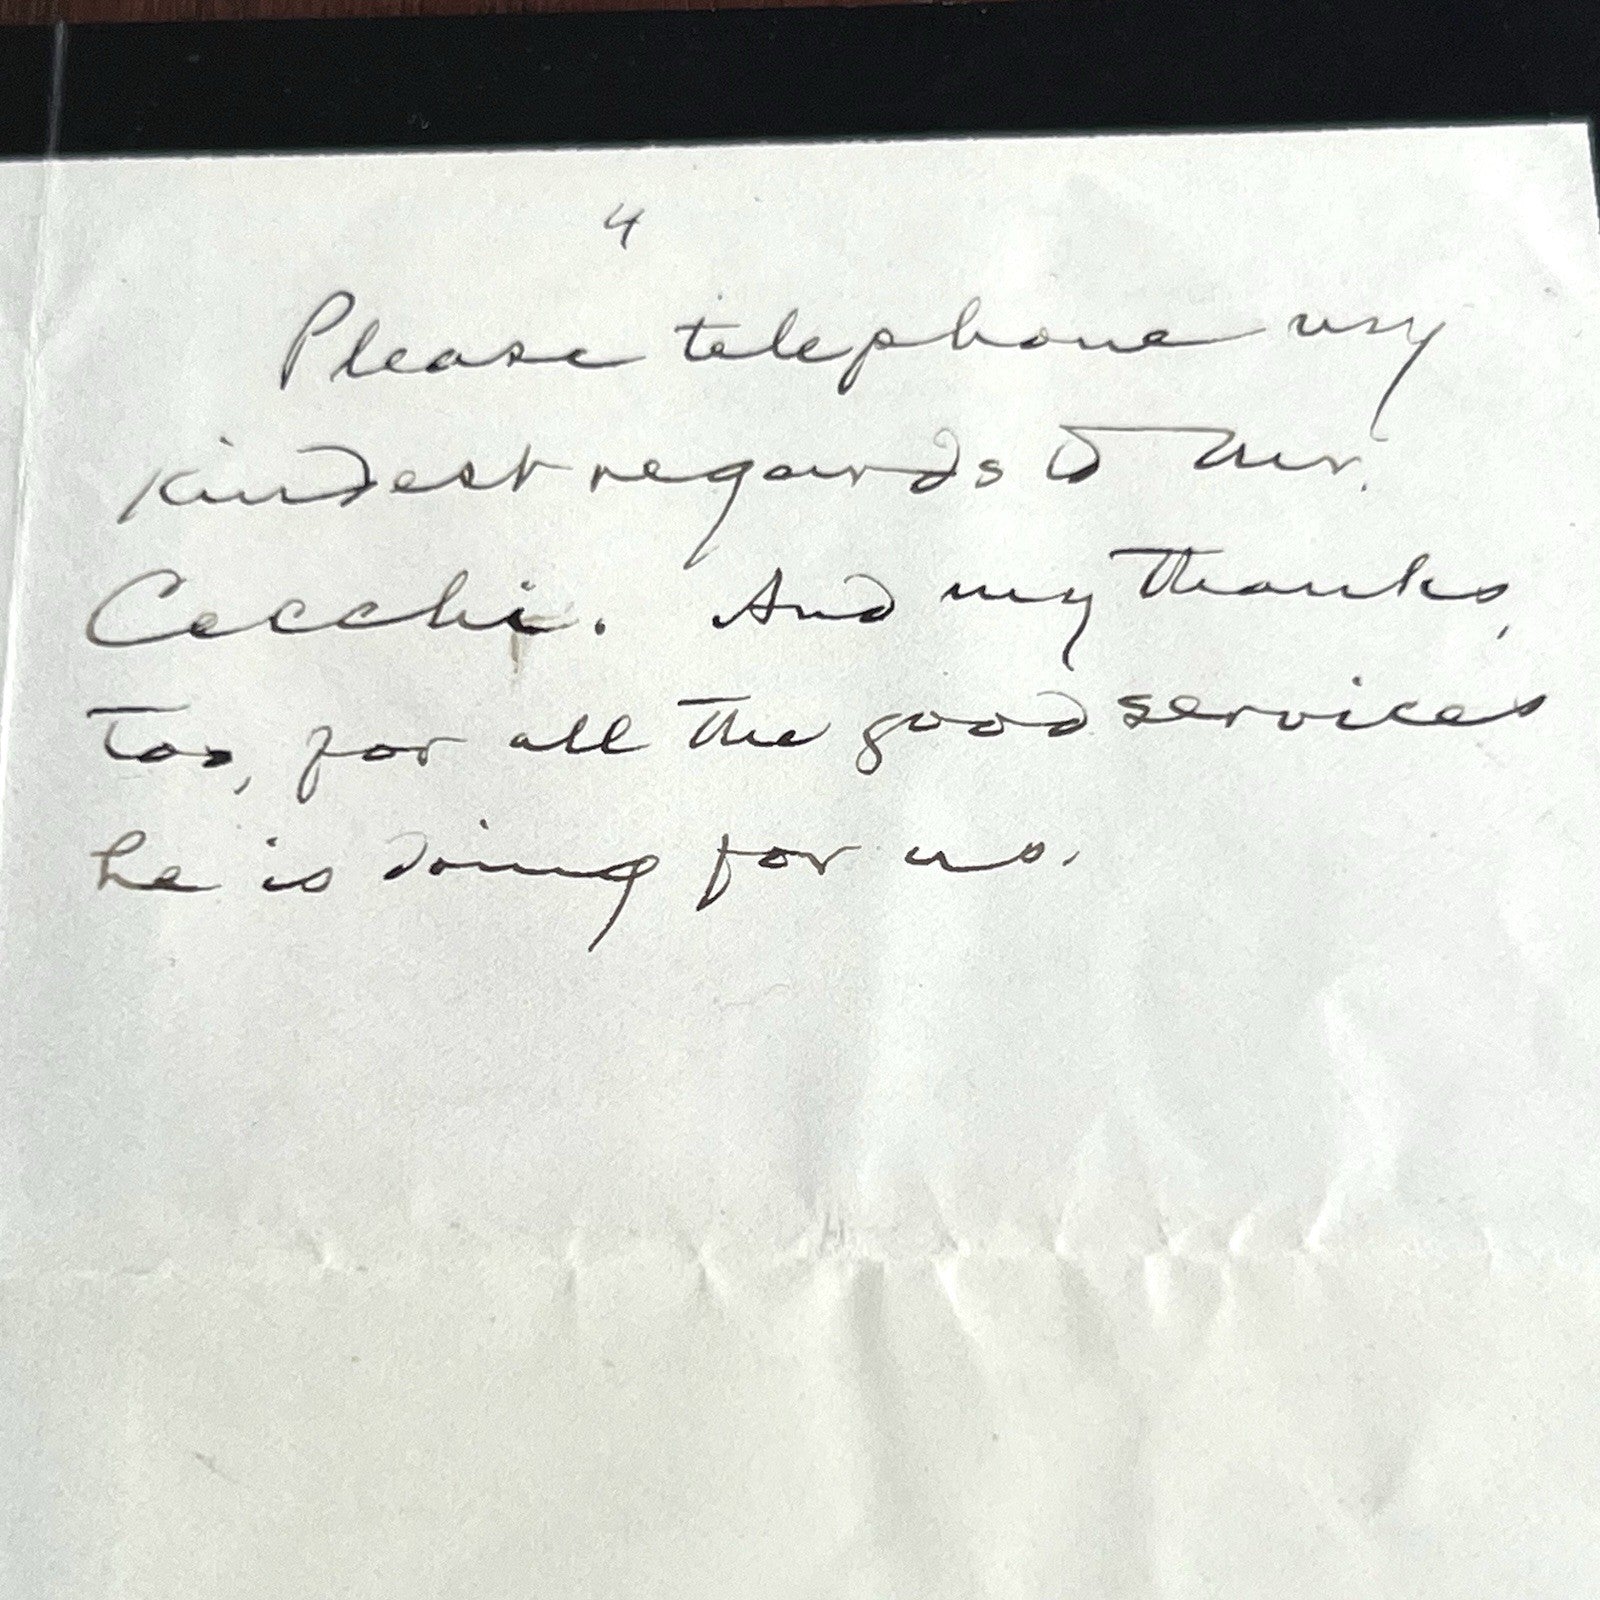 4
Please telephone my
kindest regards to Mr.
Cecchi. And my thanks,
too, for all the good services
he is doing for us.